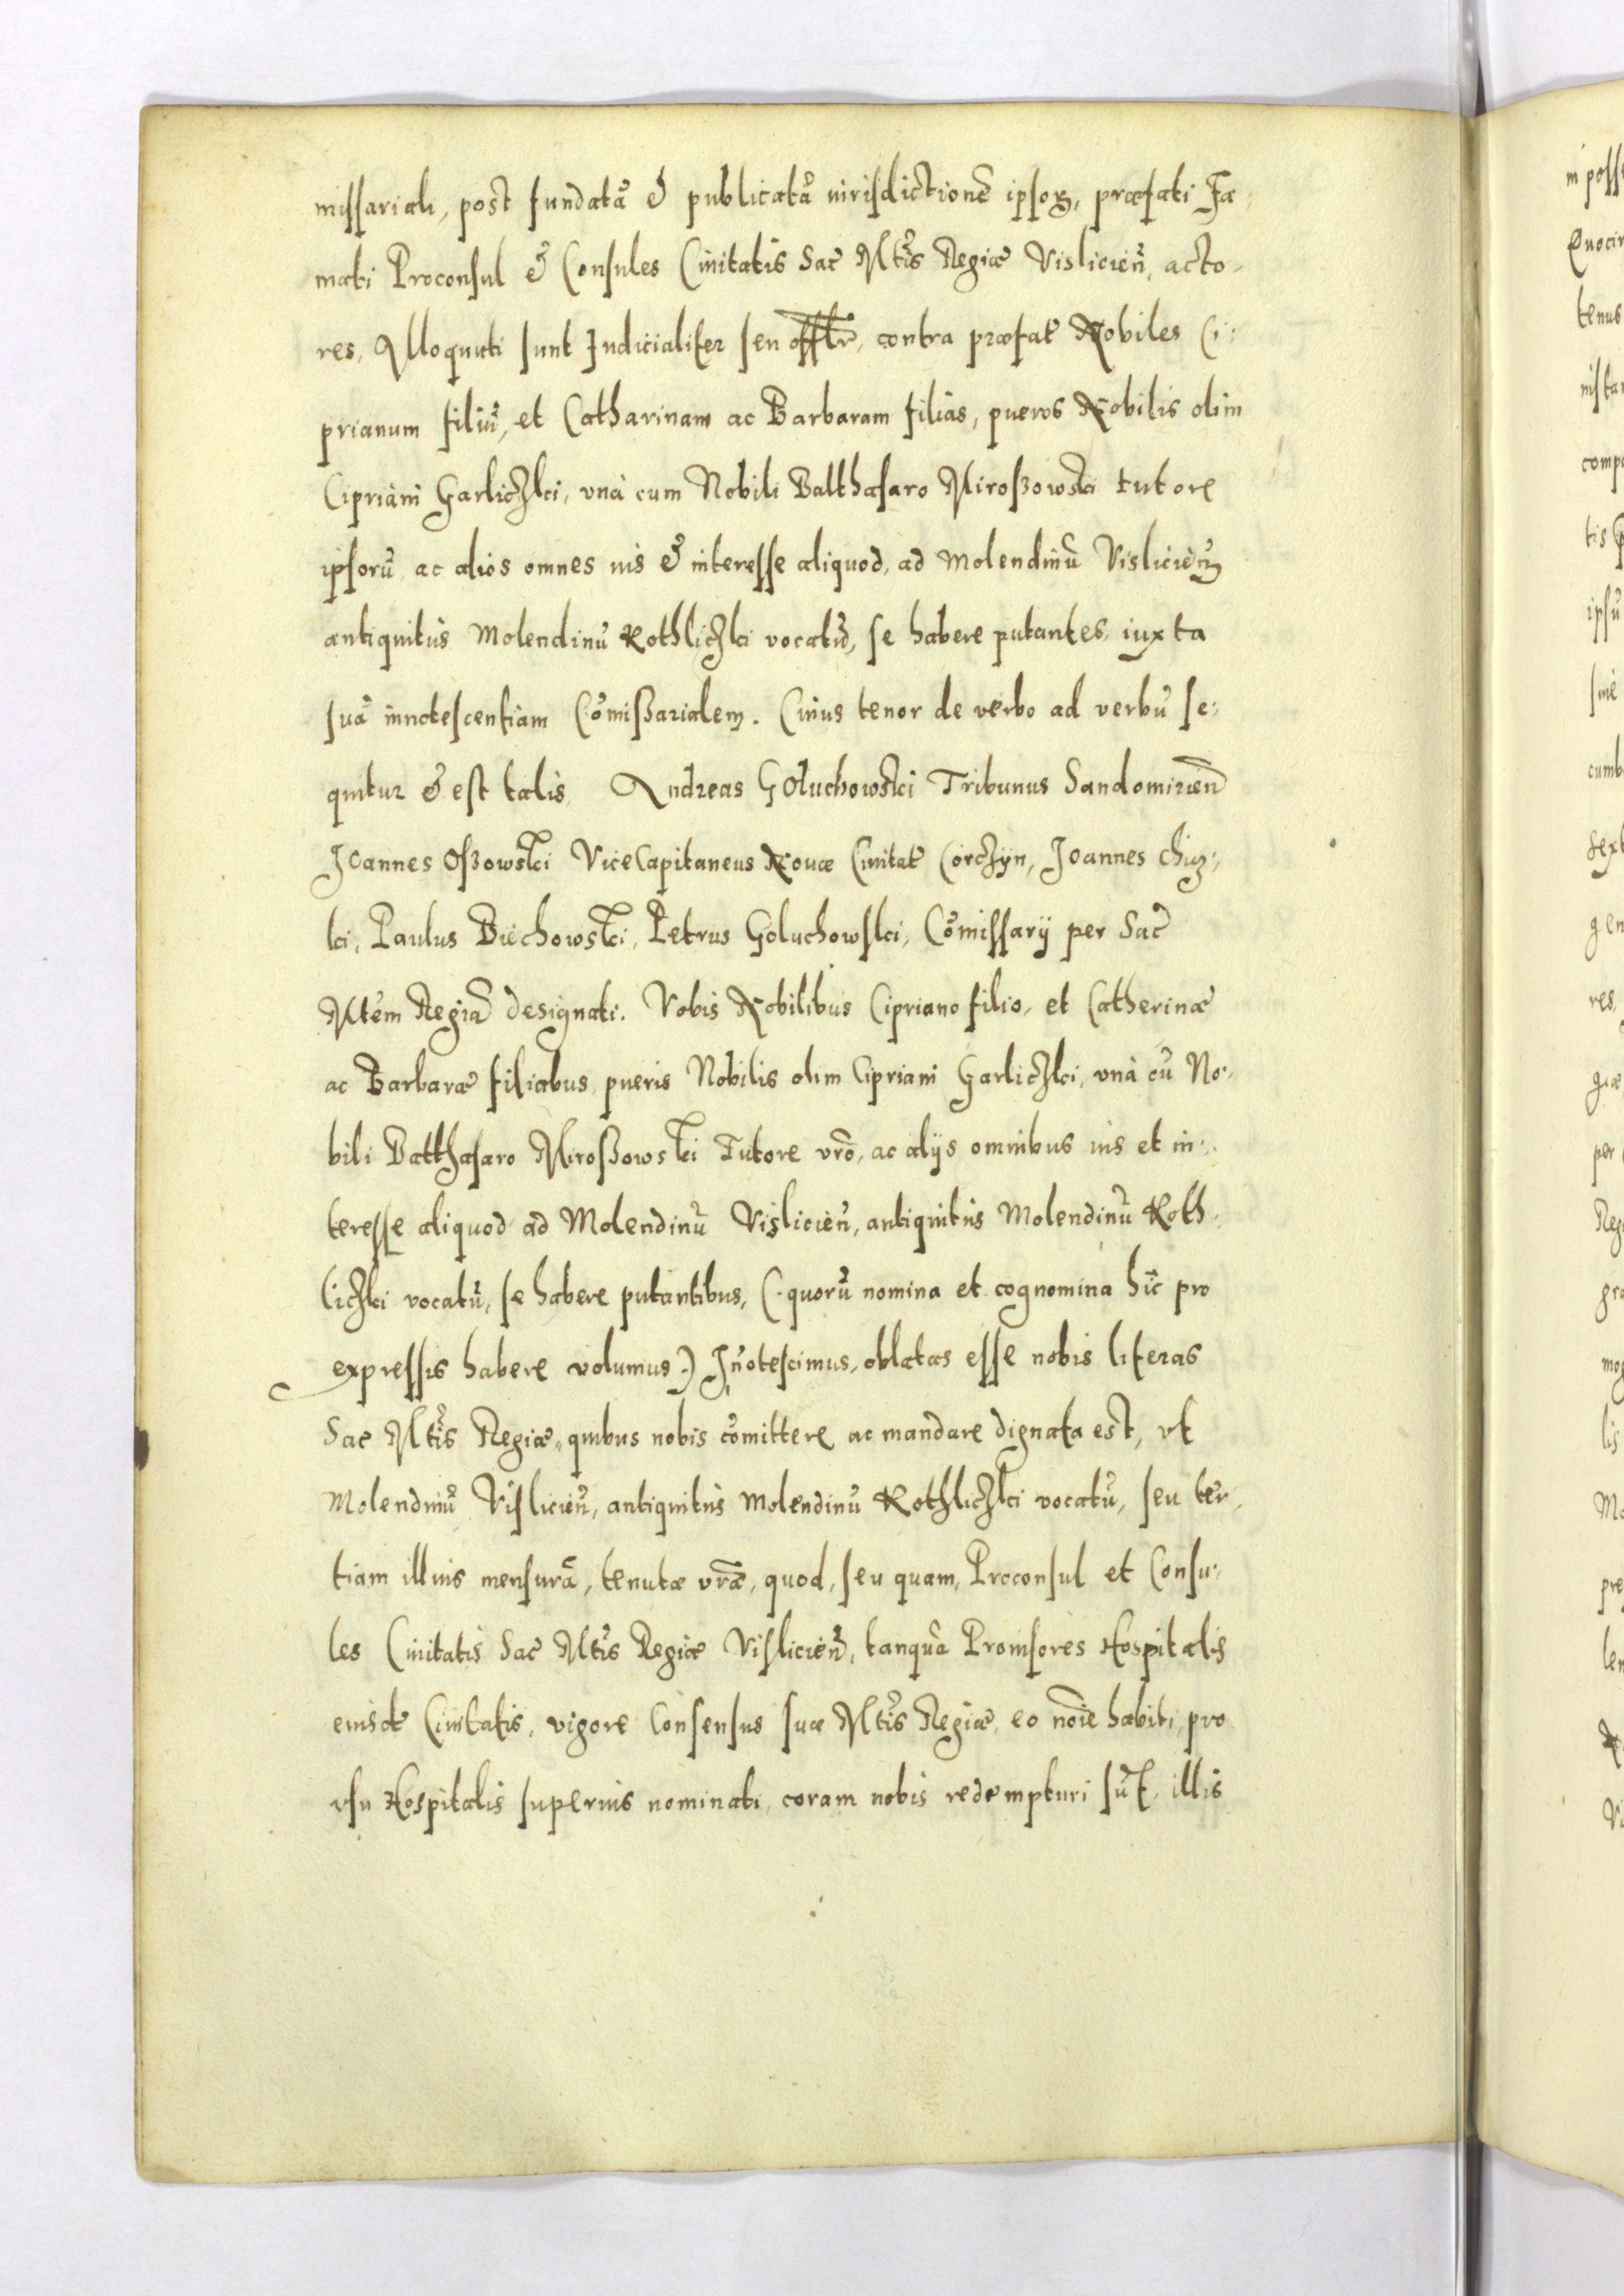 missariali, post fundatā & publicatā iurisdictionē ipsoꝝ, præfati Fa-
mati Proconsul & Consules Ciuitatis Sac̄ Mtis Regiæ Vislicien̄, acto-
res, Alloquuti sunt Iudicialiter seu offtr, contra præfat̄ Nobiles Ci-
prianum filiū, et Catharinam ac Barbaram filias, pueros Nobilis olim
Cipriani Garliczki, vnà cum Nobili Balthasaro Miroßowski tutore
ipsorū, ac alios omnes ius & interesse aliquod, ad Molendinū Vislicien̄
antiquitùs Molendinū Kothliczki vocatū, se habere putantes, iuxta
suā innotescentiam Cōmißarialem. Cuius tenor de verbo ad verbū se-
quitur & est talis. Andreas Goluchowski Tribunus Sandomirien̄
Joannes Oßowski ViceCapitaneus Nouæ Ciuitat̄ Corczyn, Joannes Chiz-
ki, Paulus Biechowski, Petrus Goluchowski, Cōmissarij per Sac̄
Mtem Regiā designati. Vobis Nobilibus Cipriano filio, et Catherinæ
ac Barbaræ filiabus, pueris Nobilis olim Cipriani Garliczki, vnà cū No-
bili Balthasaro Miroßowski Tutore vrō, ac alijs omnibus ius et in-
teresse aliquod ad Molendinū Vislicien̄, antiquitùs Molendinū Koth-
liczki vocatū, se habere putantibus, (quorū nomina et cognomina hîc pro
expressis habere volumus.) Iñotescimus, oblatas esse nobis literas
Sac̄ Mtis Regiæ, quibus nobis cōmittere ac mandare dignata est, vt
Molendinū Vislicien̄, antiquitùs Molendinū Kothliczki vocatū, seu ter-
tiam illius mensurā, tenutæ vræ, quod, seu quam, Proconsul et Consu-
les Ciuitatis Sac̄ Mtis Regiæ Vislicien̄, tanquā Prouisores Hospitalis
eiusdē Ciuitatis, vigore Consensus suæ Mtis Regiæ, eo noīe habiti, pro
vsu Hospitalis superius nominati, coram nobis redempturi sūt, illis